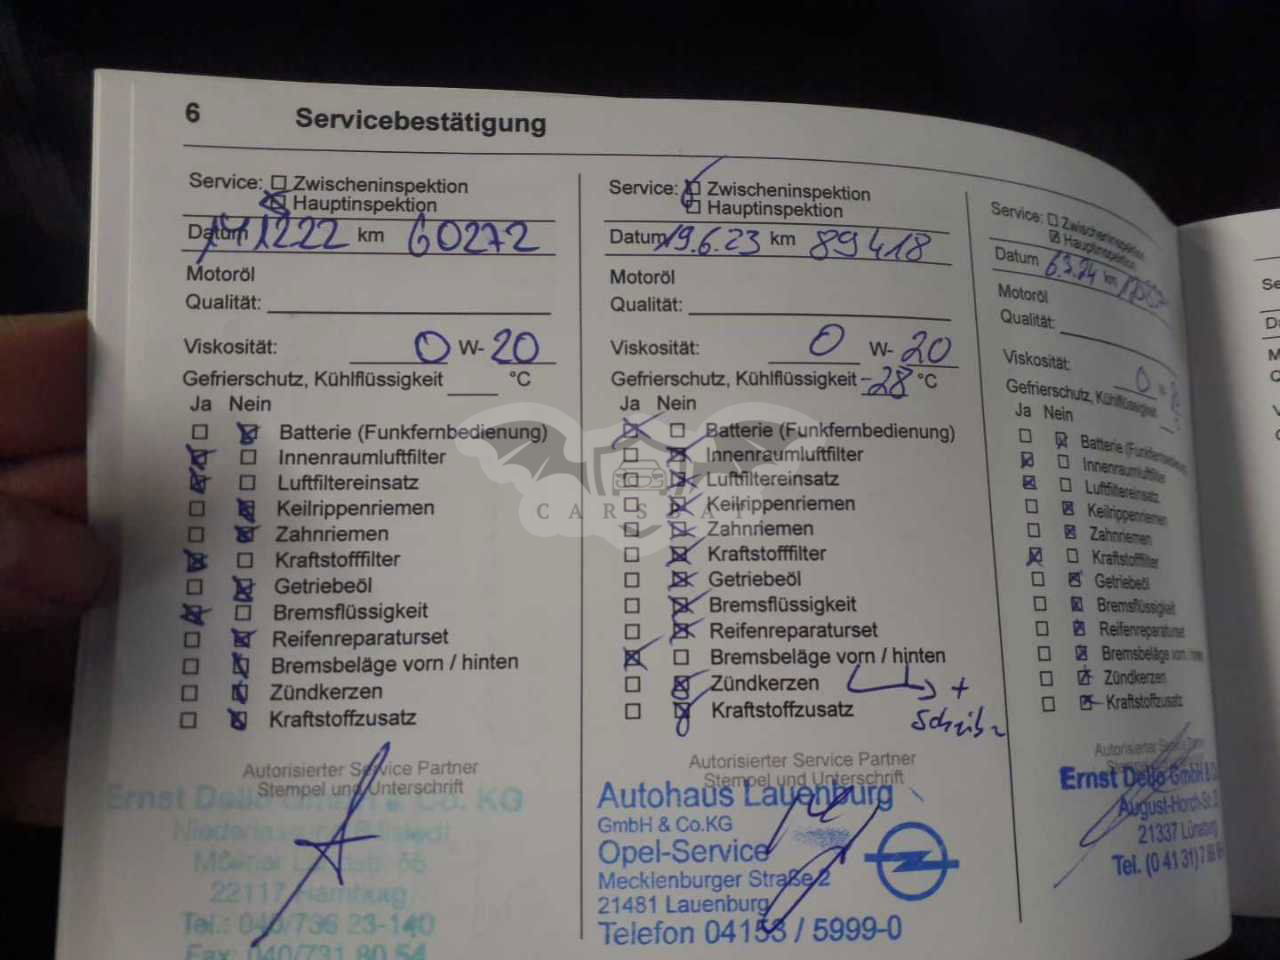 6 Servicebestätigung
Service: Zwischeninspektion
Hauptinspektion
Datum 141222 km 60272
Motoröl
Qualität:
Viskosität: 0 W- 20
Gefrierschutz, Kühlflüssigkeit °C
Ja Nein
Batterie (Funkfernbedienung)
Innenraumluftfilter
Luftfiltereinsatz
Keilrippenriemen
Zahnriemen
Kraftstofffilter
Getriebeöl
Bremsflüssigkeit
Reifenreparaturset
Bremsbeläge vorn / hinten
Zündkerzen
Kraftstoffzusatz
Autorisierter Service Partner
Stempel und Unterschrift
Ernst Dello GmbH & Co. KG
22117 Hamburg
Tel.: 040/736 23-140
Fax: 040/731 80 54
Service: Zwischeninspektion
Hauptinspektion
Datum 19.6.23 km 89418
Motoröl
Qualität:
Viskosität: 0 W- 20
Gefrierschutz, Kühlflüssigkeit -28 °C
Ja Nein
Batterie (Funkfernbedienung)
Innenraumluftfilter
Luftfiltereinsatz
Keilrippenriemen
Zahnriemen
Kraftstofffilter
Getriebeöl
Bremsflüssigkeit
Reifenreparaturset
Bremsbeläge vorn / hinten
Zündkerzen +
Kraftstoffzusatz
Autorisierter Service Partner
Stempel und Unterschrift
Autohaus Lauenburg
GmbH & Co.KG
Opel-Service
Mecklenburger Straße 2
21481 Lauenburg
Telefon 04153 / 5999-0
Service: Zwischeninspektion
Hauptinspektion
Datum 6.3.24 km
Motoröl
Qualität:
Viskosität: 0
Gefrierschutz, Kühlflüssigkeit
Ja Nein
Batterie
Innenraumluftfilter
Luftfiltereinsatz
Keilrippenriemen
Zahnriemen
Kraftstofffilter
Getriebeöl
Bremsflüssigkeit
Reifenreparaturset
Bremsbeläge vorn
Zündkerzen
Kraftstoffzusatz
Autorisierter
Ernst Dello GmbH &
August-Horch-Str.
21337 Lüneburg
Tel. (0 41 31)
CARSDATA